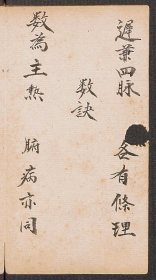 遲兼四脉 各有條理
数訣
数為主热 腑病亦同